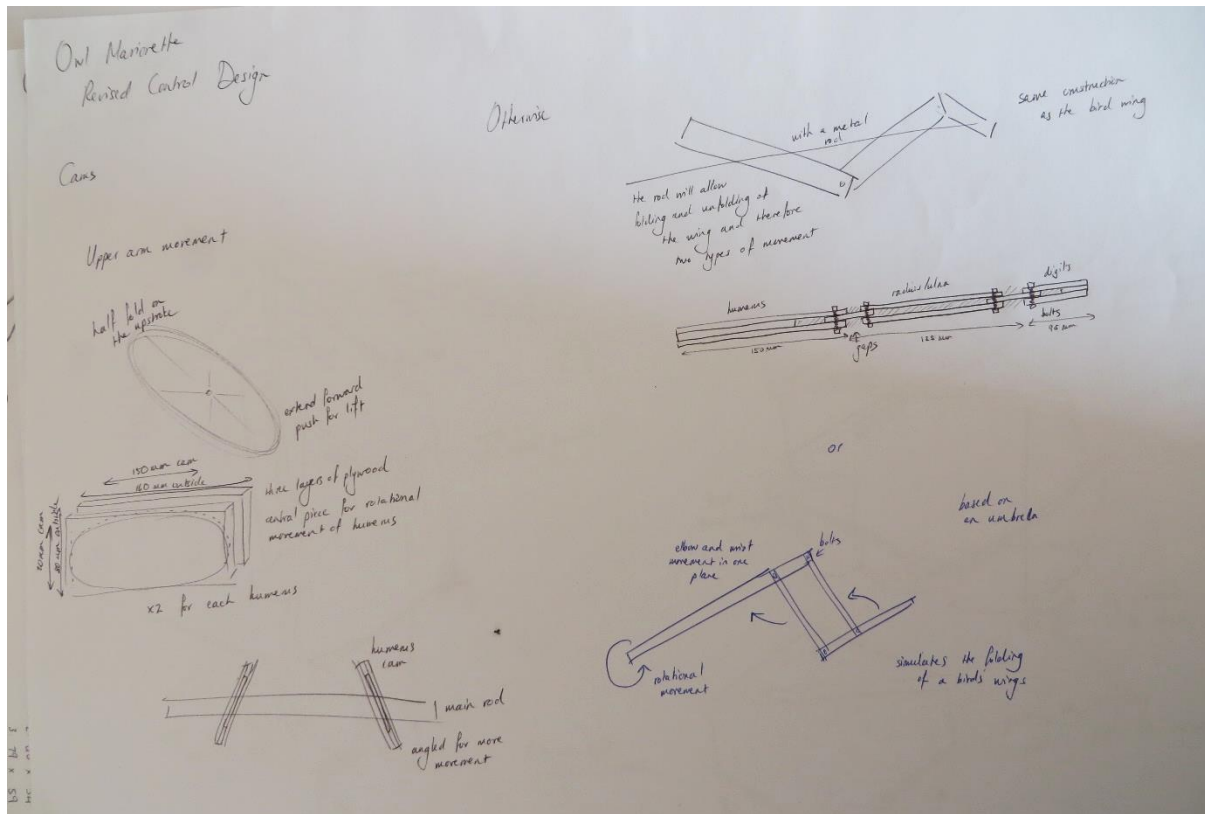 Owl Marionette
Revised Control Design
Cams
Upper arm movement
half fold on
the upstroke
extend forward
push for lift
150mm cam
160mm outside
70mm cam
80mm outside
three layers of plywood
central piece for rotational
movement of humerus
x2 for each humerus
humerus
cam
main rod
angled for more
movement
Otherwise
with a metal
rod
same construction
as the bird wing
the rod will allow
folding and unfolding of
the wing and therefore
two types of movement
humerus
radius/ulna
digits
150mm
gaps
125mm
bolts
95mm
or
based on
an umbrella
elbow and wrist
movement in one
plane
bolts
rotational
movement
simulates the folding
of a birds' wings